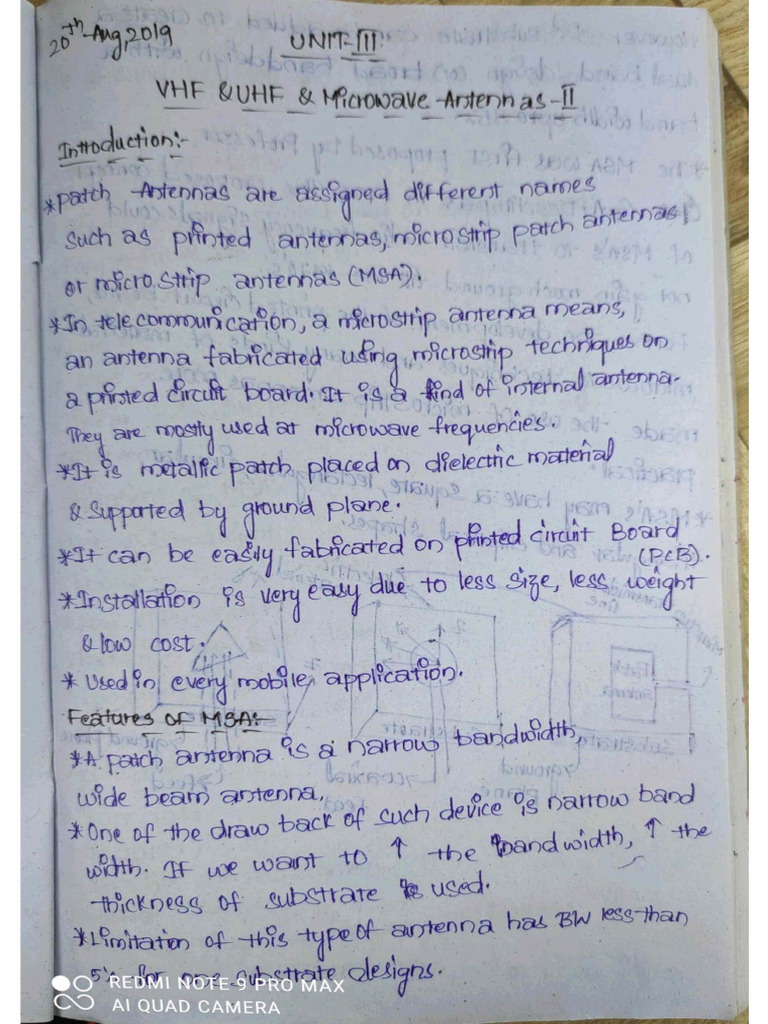 20th-Aug,2019
UNIT-III
VHF & UHF & Microwave Antennas-II
Introduction:-
*patch Antennas are assigned different names
such as printed antennas, microstrip patch antennas,
or microstrip antennas (MSA).
*In telecommunication, a microstrip antenna means,
an antenna fabricated using microstrip techniques on
a printed circuit board. It is a kind of internal antenna.
They are mostly used at microwave frequencies.
*It is metallic patch placed on dielectric material
& supported by ground plane.
*It can be easily fabricated on printed circuit Board
(PCB).
*Installation is very easy due to less size, less weight
& low cost.
* Used in every mobile application.
Features of MSA:-
*A patch antenna is a narrow bandwidth,
wide beam antenna.
*One of the draw back of such device is narrow band
width. If we want to ↑ the bandwidth, ↑ the
thickness of substrate is used.
*Limitation of this type of antenna has BW less than
5% for one substrate designs.
REDMI NOTE 9 PRO MAX
AI QUAD CAMERA